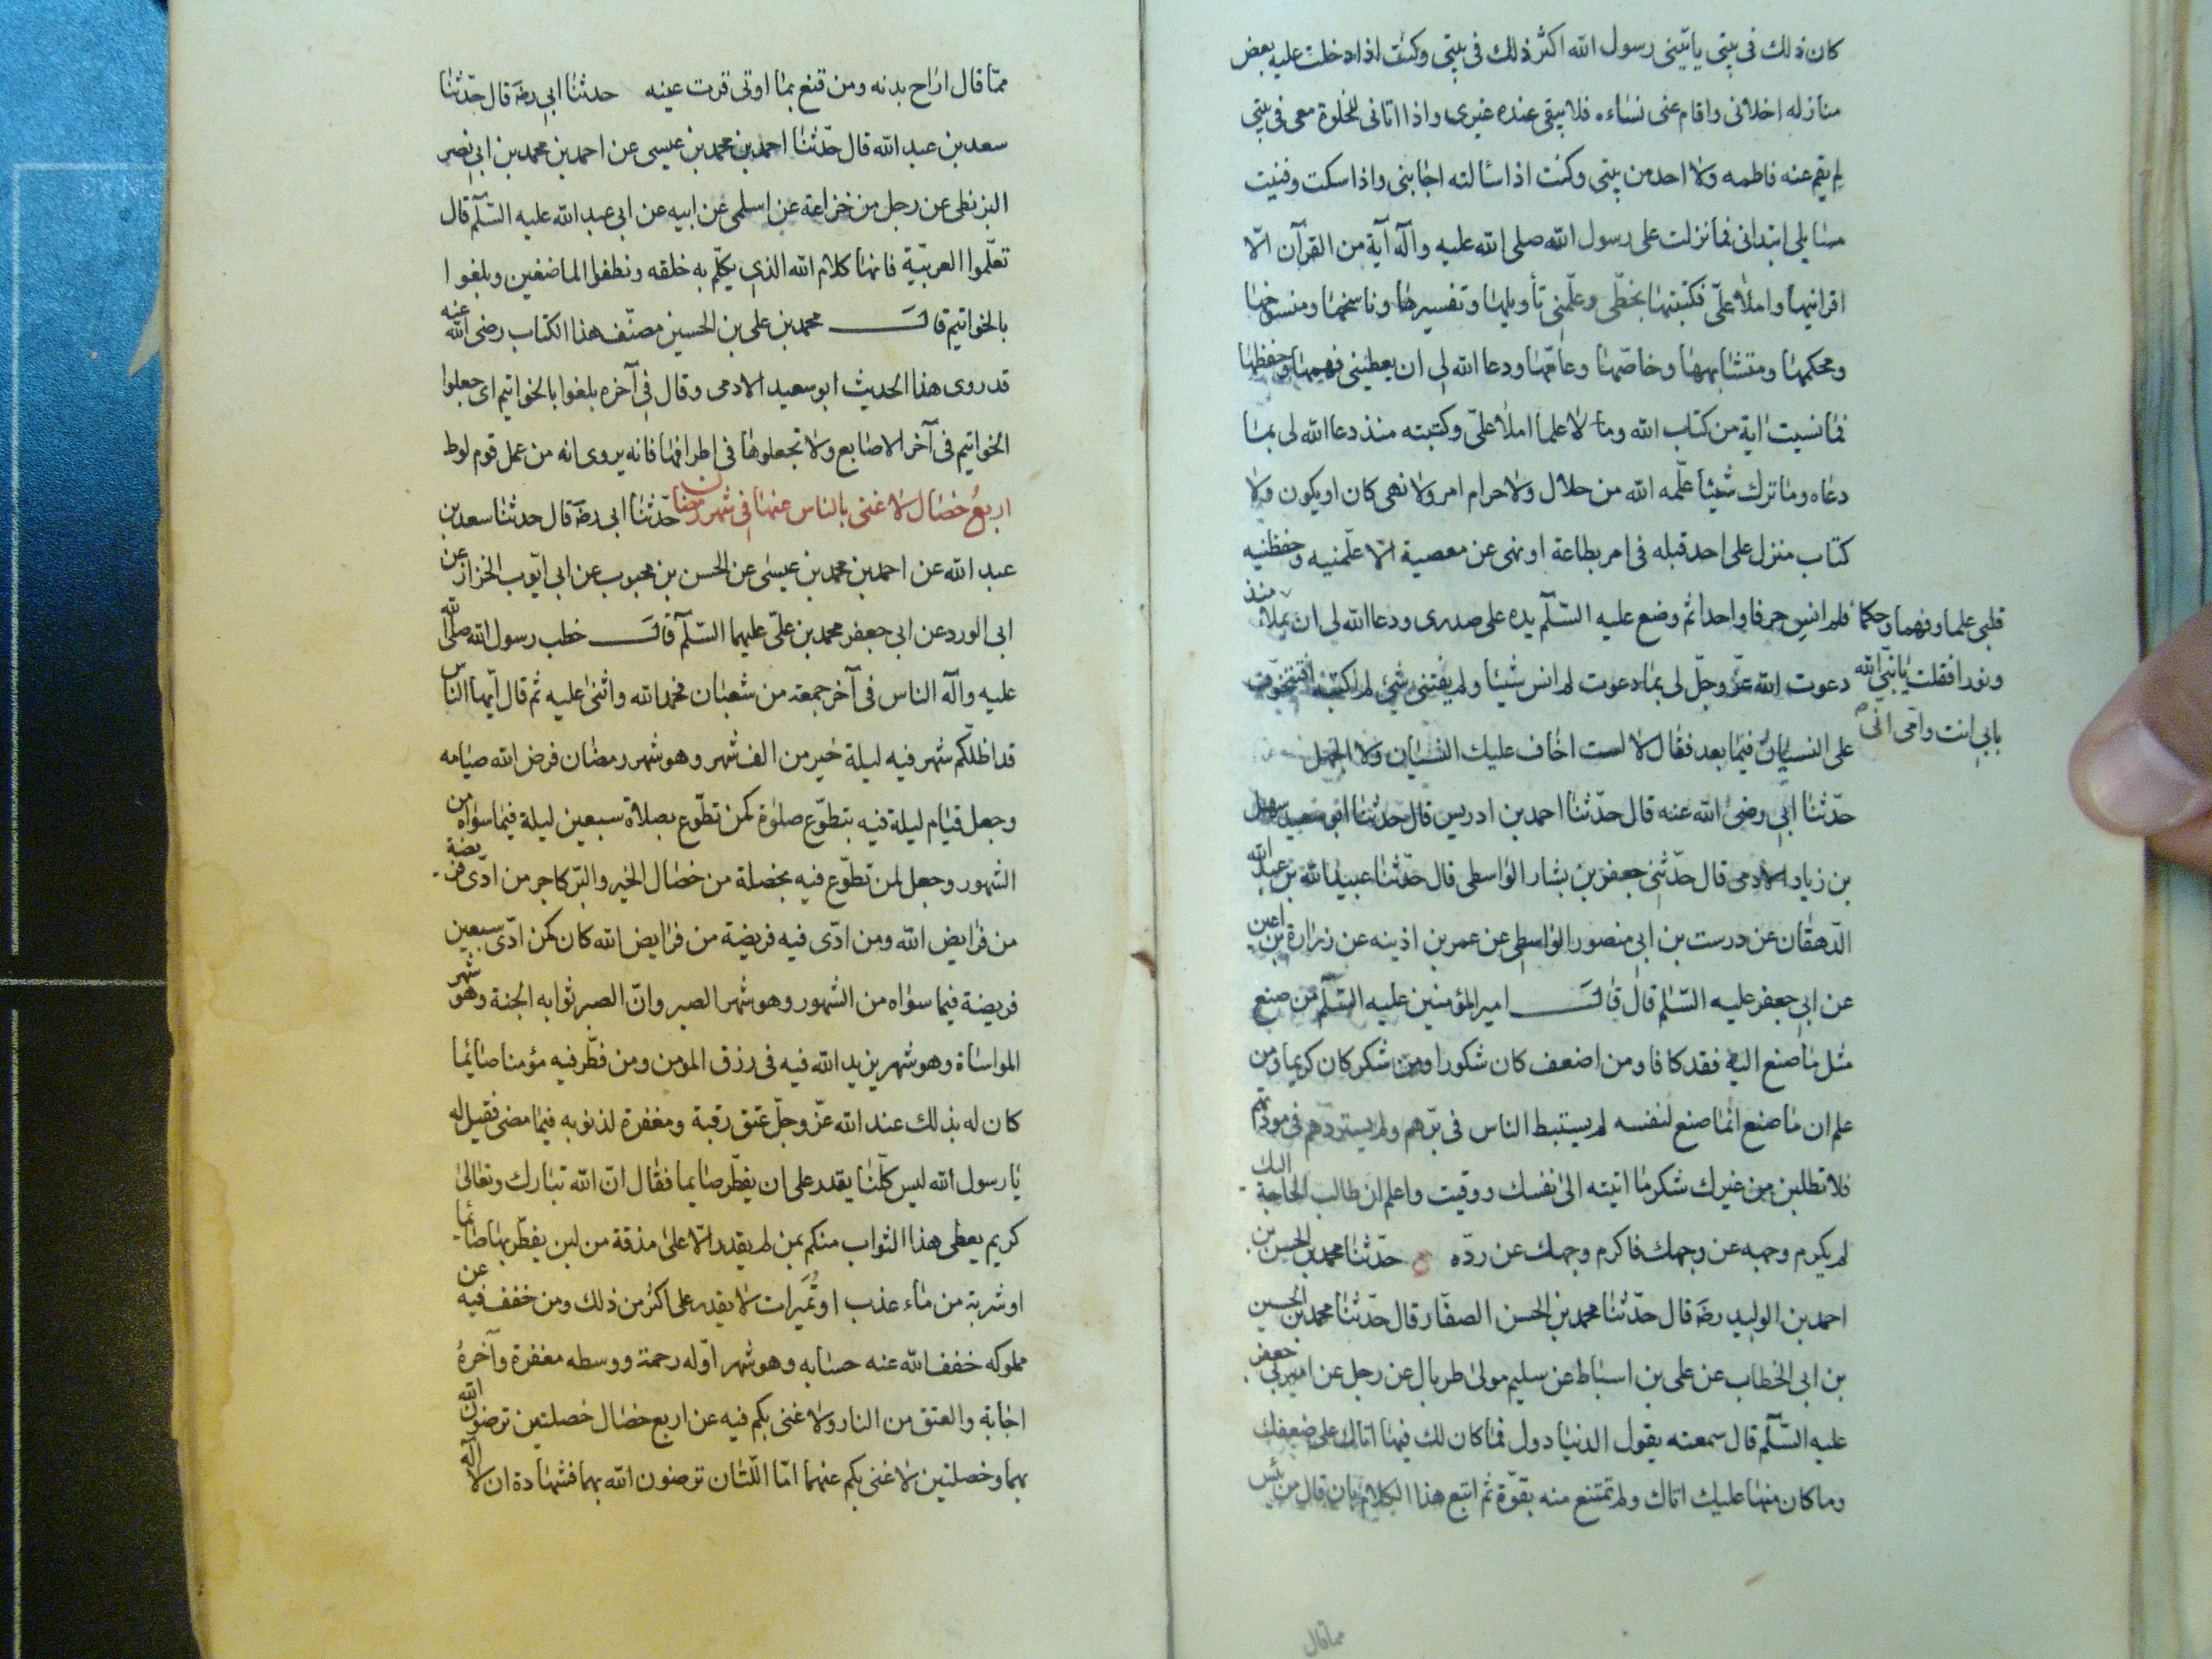 كان ذلك في بيتي ياتيني رسول الله اكثر ذلك في بيتي وكنت اذا دخلت عليه بعض
منازله اخلاني واقام عني نساءه فلا يبقى عنده غيرى واذا اتاني للخلوة معى في بيتي
لم يقم عنه فاطمه ولا احد من بيتي وكنت اذا سألته اجابني واذا سكت وفنيت
مسايلي ابتداني فما نزلت على رسول الله صلى الله عليه وآله آية من القرآن الّا
اقرانيها واملاها علىّ فكتبتها بخطّى وعلّمنى تأويلها وتفسيرها وناسخها ومنسوخها
ومحكمها ومتشابهها وخاصّها وعامّها ودعا الله لي ان يعطيني فهمها وحفظها
فما نسيت اية من كتاب الله ولا علما املاه علىّ وكتبته منذ دعا الله لى بما
دعاه وما ترك شيئا علّمه الله من حلال ولا حرام امر ولا نهى كان او يكون ولا
كتاب منزل على احد قبله في امر بطاعة او نهى عن معصية الّا علّمنيه وحفظنيه
فلم انس حرفا واحدا ثم وضع عليه السّلم يده على صدرى ودعا الله لى ان يملأ
قلبي علما وفهما وحكما
ونورا فقلت يا نبيّ الله
بابي انت وامّى انى
منذ دعوت الله عزّ وجلّ لى بما دعوت لم انس شيئا ولم يفتني شئ لم اكتبه افتتخوّف
على النسيان فيما بعد فقال لا لست اخاف عليك النسيان ولا الجهل
حدّثنا ابي رضى الله عنه قال حدّثنا احمد بن ادريس قال حدّثنا ابو سعيد سهل
بن زياد الآدمى قال حدّثنى جعفر بن بشار الواسطى قال حدّثنا عبيد الله بن عبد الله
الدّهقان عن درست بن ابى منصور الواسطى عن عمر بن اذينه عن زرارة بن اعين
عن ابى جعفر عليه السّلم قال قال امير المؤمنين عليه السّلم من صنع
مثل ما صنع اليه فقد كافا ومن اضعف كان شكورا ومن شكر كان كريما ومن
علم ان ما صنع انما صنع لنفسه لم يستبط الناس في برّهم ولم يستزدهم فى مودّتهم
فلا تطلبن من غيرك شكر ما اتيته الى نفسك ووقيت واعلم ان طالب الحاجة اليك
لم يكرم وجهه عن وجهك فاكرم وجهك عن ردّه حدّثنا محمد بن الحسن بن
احمد بن الوليد رضه قال حدّثنا محمد بن الحسن الصفّار قال حدّثنا محمد بن الحسين
بن ابى الخطاب عن على بن اسباط عن سليم مولى طربال عن رجل عن ابى جعفر
عليه السّلم قال سمعته يقول الدنيا دول فما كان لك فيها اتاك على ضعفك
وما كان منها عليك اتاك ولم تمتنع منه بقوّة ثم اتبع هذا الكلام بان قال من يئس
مما قال
ممّا قال اراح بدنه ومن قنع بما اوتى قرت عينه حدثنا ابى رضه قال حدّثنا
سعد بن عبد الله قال حدّثنا احمد بن محمد بن عيسى عن احمد بن محمد بن ابى نصر
البزنطى عن رجل من خزاعة عن اسلمى عن ابيه عن ابى عبد الله عليه السّلم قال
تعلّموا العربيّة فانها كلام الله الذى يكلّم به خلقه ونطفوا الماضغين وبلغوا
بالخواتيم قال محمد بن على بن الحسين مصنّف هذا الكتاب رضى الله عنه
قد روى هذا الحديث ابو سعيد الادمى وقال فى آخره بلغوا بالخواتيم اى جعلوا
الخواتيم فى آخر الاصابع ولا تجعلوها فى اطرافها فانه يروى انه من عمل قوم لوط
اربع خصال لا غنى بالناس عنها فى شهر رمضان حدّثنا ابى رضه قال حدثنا سعد بن
عبد الله عن احمد بن محمد بن عيسى عن الحسن بن محبوب عن ابى ايّوب الخزاز عن
ابى الورد عن ابى جعفر محمد بن علىّ عليهما السّلم قال خطب رسول الله صلّى الله
عليه وآله الناس فى آخر جمعة من شعبان فحمد الله واثنى عليه ثم قال ايّها الناس
قد اظلّكم شهر فيه ليلة خير من الف شهر وهو شهر رمضان فرض الله صيامه
وجعل قيام ليلة فيه بتطوّع صلوة كمن تطوّع بصلاة سبعين ليلة فيما سواه من
الشهور وجعل لمن تطوّع فيه بخصلة من خصال الخير والبرّ كاجر من ادّى فريضة
من فرايض الله ومن ادّى فيه فريضة من فرايض الله كان كمن ادّى سبعين
فريضة فيما سواه من الشهور وهو شهر الصبر وانّ الصبر ثوابه الجنة وهو شهر
المواساة وهو شهر يزيد الله فيه فى رزق المومن ومن فطّر فيه مؤمنا صائما
كان له بذلك عند الله عزّ وجلّ عتق رقبة ومغفرة لذنوبه فيما مضى فقيل له
يا رسول الله ليس كلّنا يقدر على ان يفطّر صايما فقال انّ الله تبارك وتعالى
كريم يعطى هذا الثواب منكم من لم يقدر الّا على مذقة من لبن يفطّر بها صائما
او شربة من ماء عذب او تُمَيرات لا يقدر على اكثر من ذلك ومن خفف فيه عن
مملوكه خفف الله عنه حسابه وهو شهر اوّله رحمة ووسطه مغفرة وآخره
اجابة والعتق من النار ولا غنى بكم فيه عن اربع خصال خصلتين ترضون الله
بهما وخصلتين لا غنى بكم عنهما امّا اللّتان ترضون الله بهما فشهادة ان لا اله